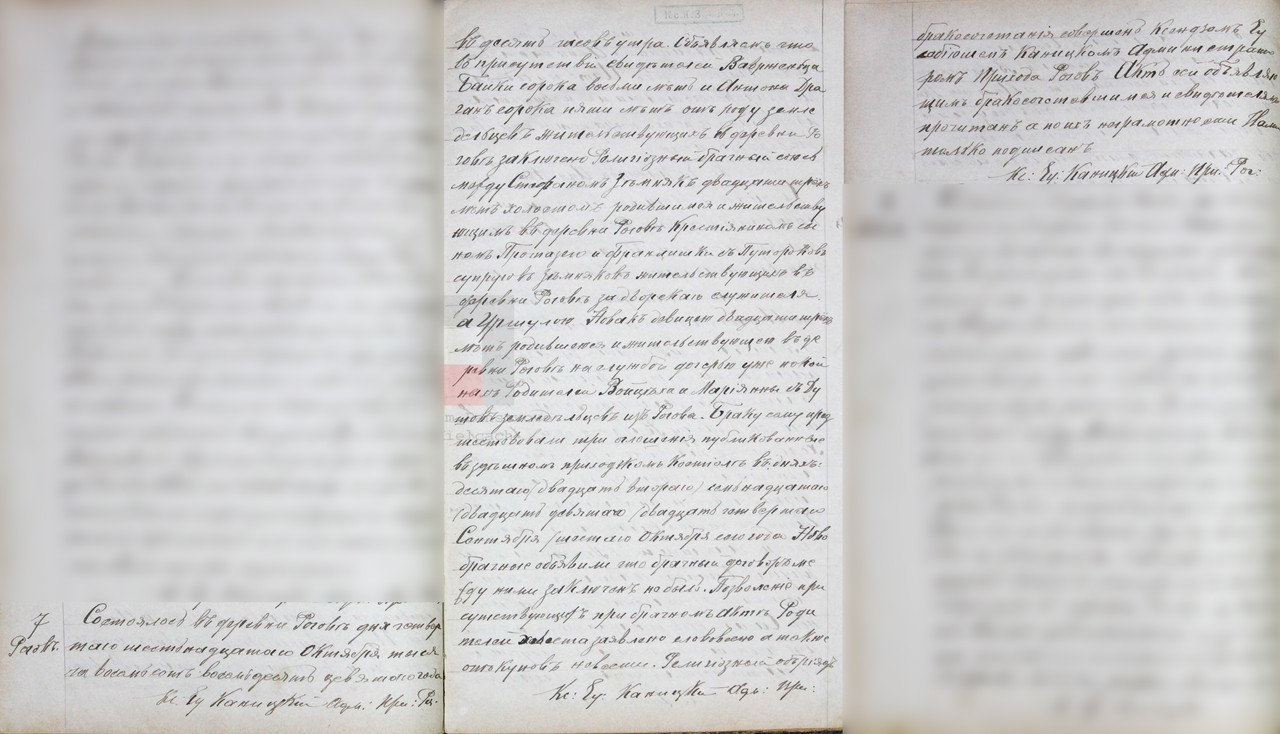 7
Рговъ.
Состоялось въ деревни Роговъ дня четвер
таго шестьнадцатаго Октября тыся
ча восемьсотъ восемьдесятъ девятого года
Кс: Еу Каницкій Адм: При: Ро:
въ десять часовъ утра. Объявляемъ что
въ присутствіи свидѣтелей Ваврженьца
Банки сорока восьми лѣтъ и Антона Дра
ганъ сорока пяти лѣтъ отъ роду земле
дѣльцевъ жительствующихъ въ деревни Ро
говъ заключено Религіозный брачный союзъ
между Стефаномъ Зѣмнякъ двадцати трехъ
лѣтъ холостомъ родившимся и жительству
ющимъ въ деревни Роговъ Крестіяниномъ сы
номъ Протазего и Францишки съ Путороковъ
супруговъ Зѣмняковъ жительствующихъ въ
деревни Роговъ за дворскаго служителя.
а Уршулою Новакъ девицею двадцати трехъ
лѣтъ родившеюся и жительствующею въ де
ревни Роговъ на службѣ дочерью уже покой
ныхъ Родителей Войцѣха и Маріянны съ Ду
товъ земледѣльцевъ изъ Рогова. Браку сему пред
шествовали три оглашенія публикованные
въ здѣшномъ приходскомъ Костіолѣ въ дняхъ:
десятаго (двадцать втораго) семьнадцатаго
(двадцать девятаго (двадцать четвертаго
Сентября (шестаго Октября сего года Ново
брачные объявили что брачный договоръ ме
жду ними заключенъ не былъ. Позволеніе при
сутствующихъ при брачномъ Актѣ Роди
телей заявлено словесно а также
опѣкуновъ невесты. Религіозный обрядъ
Кс: Еу. Каницкій Адм: При:
бракосочетанія совершенъ Ксендзомъ Еу
Каницкомъ Администрато
ромъ Прихода Роговъ Актъ сей объявляю
щимъ бракосочетавшимся и свидѣтелямъ
прочитанъ а по ихъ неграмотности Нами
только подписанъ
Кс: Еу: Каницкій Адм: При: Рог: